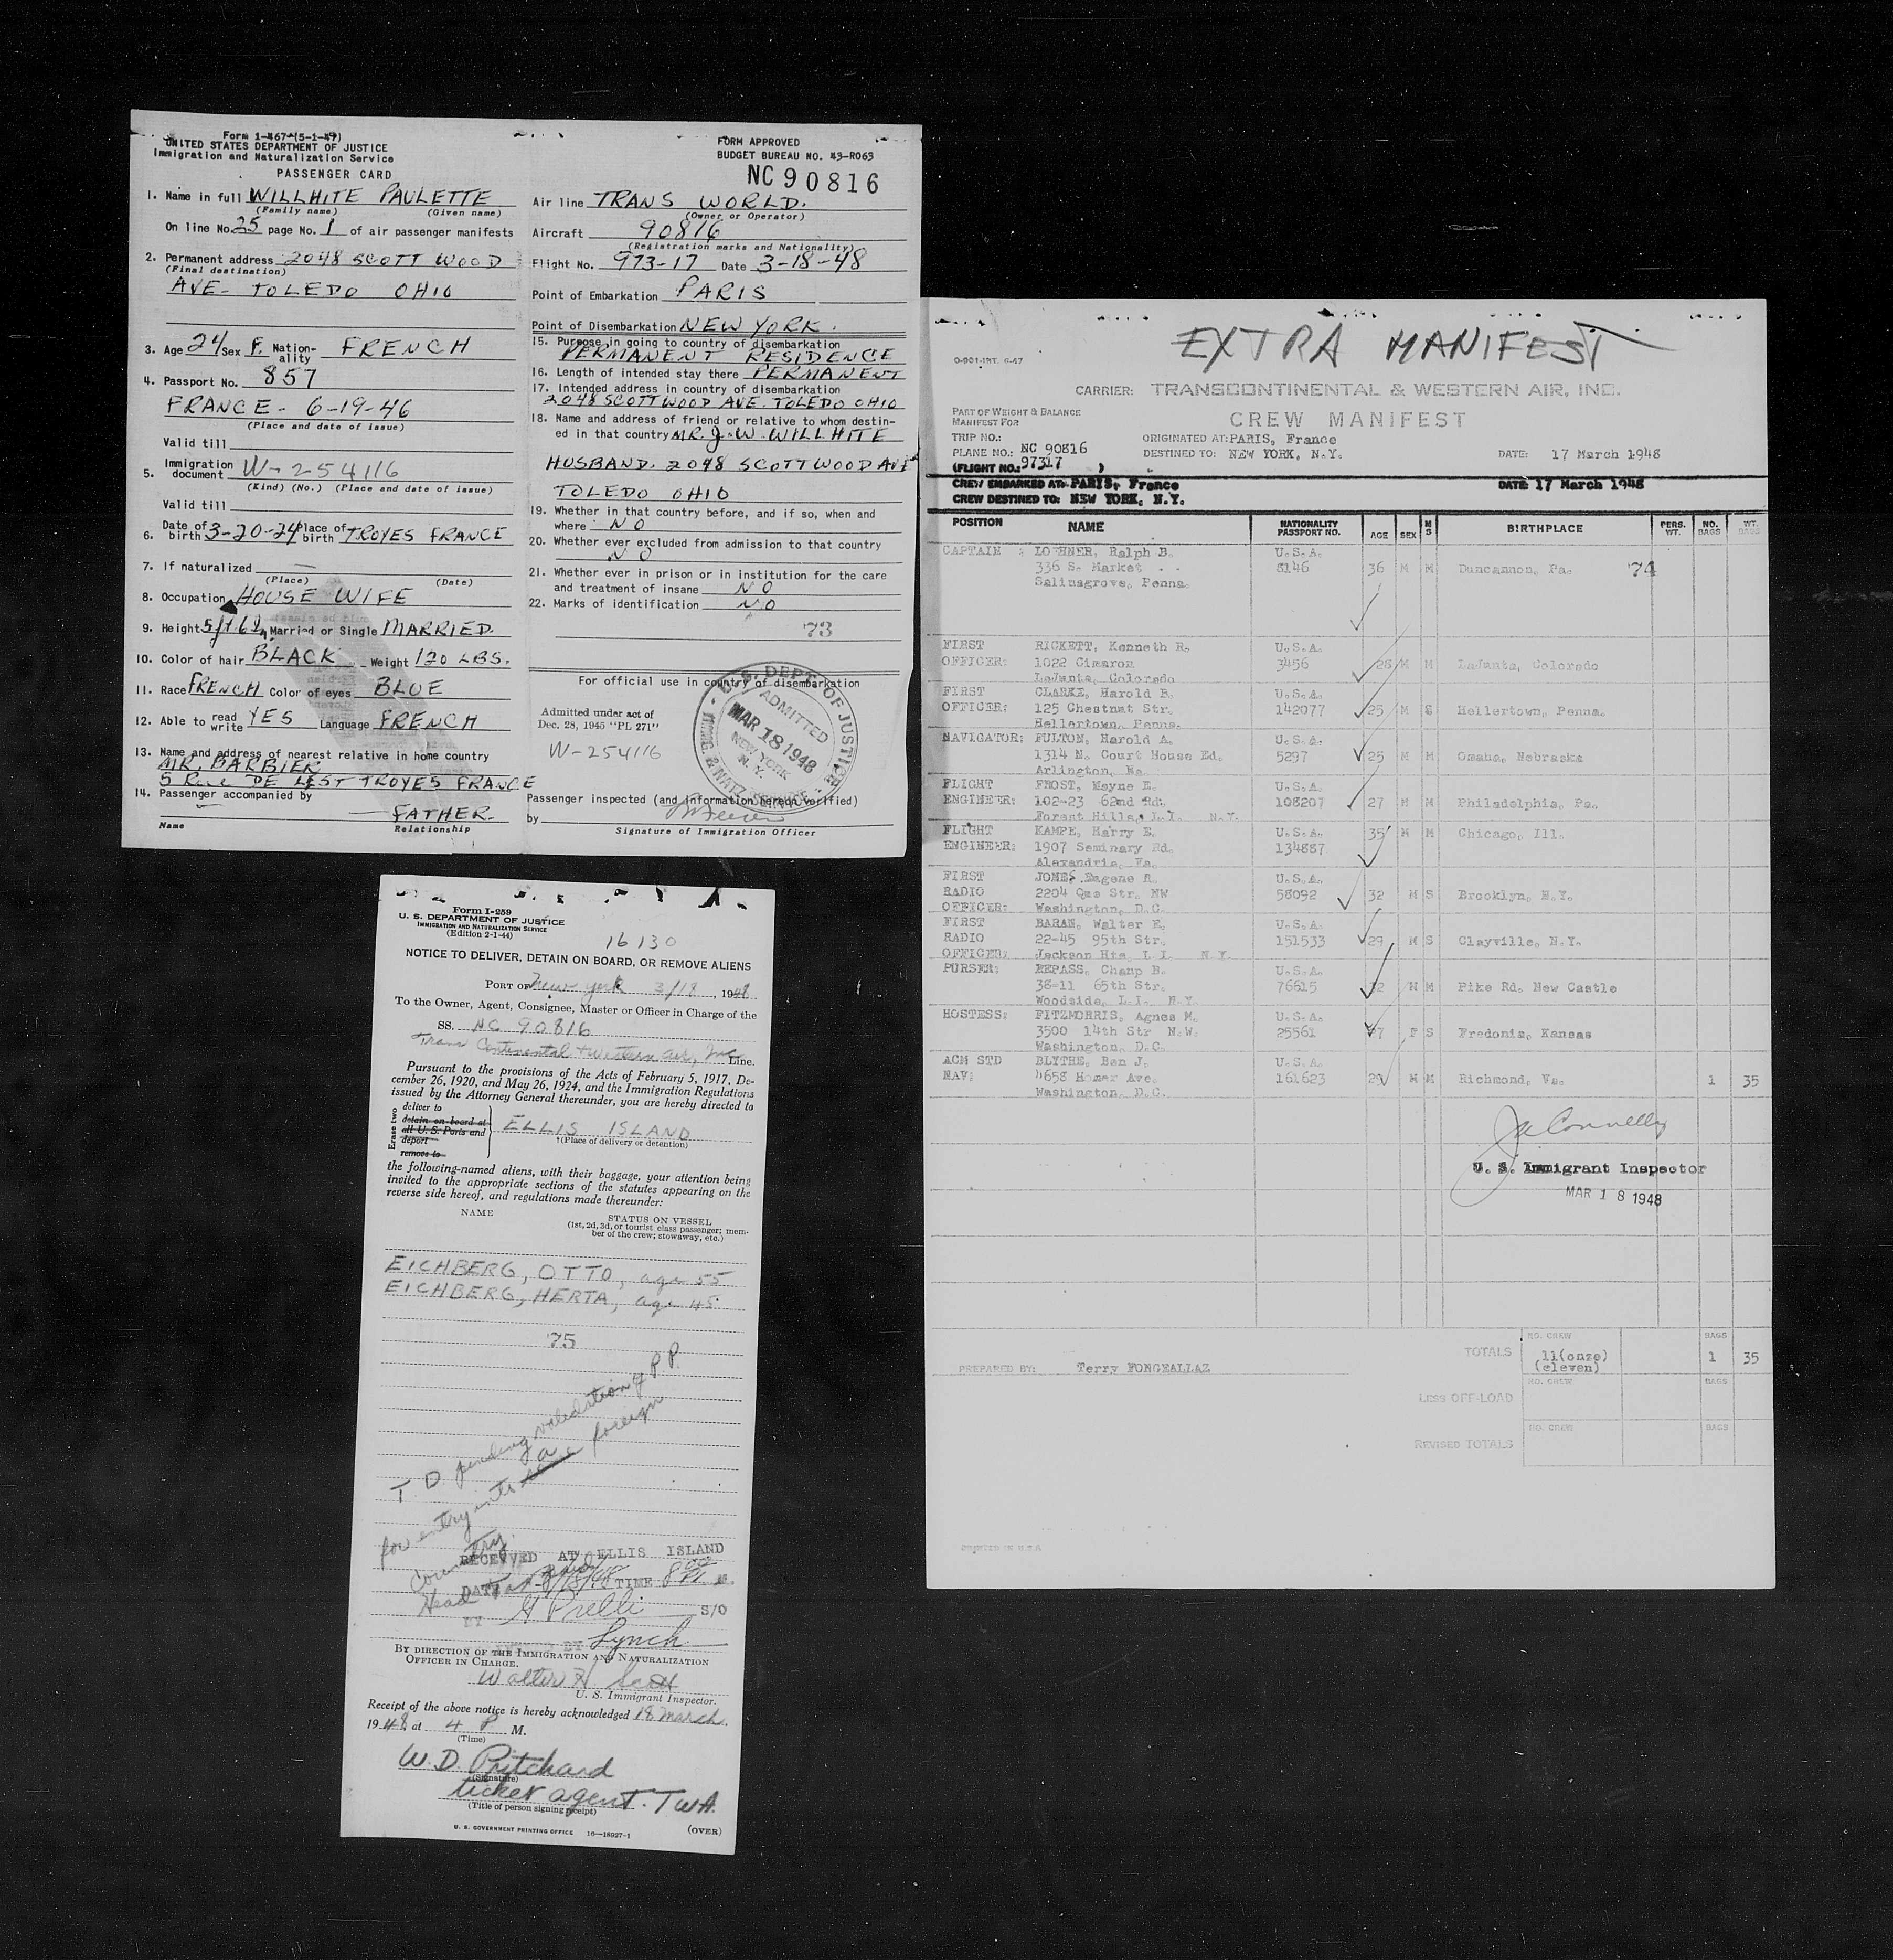 Form I-467 (5-1-47)
UNITED STATES DEPARTMENT OF JUSTICE
Immigration and Naturalization Service
PASSENGER CARD
1. Name in full WILLHITE PAULETTE
(Family name) (Given name)
On line No. 25 page No. 1 of air passenger manifests
2. Permanent address 2048 SCOTT WOOD
(Final destination)
AVE- TOLEDO OHIO
3. Age 24 Sex F. Nation-ality FRENCH
4. Passport No. 857
FRANCE - 6-19-46
(Place and date of issue)
Valid till
5. Immigration document W-254116
(Kind) (No.) (Place and date of issue)
Valid till
6. Date of birth 3-20-24 Place of birth TROYES FRANCE
7. If naturalized
(Place) (Date)
8. Occupation HOUSE WIFE
9. Height 5 ft Married or Single MARRIED.
10. Color of hair BLACK Weight 120 LBS.
11. Race FRENCH Color of eyes BLUE
12. Able to read write YES Language FRENCH
13. Name and address of nearest relative in home country
MR. BARBIER
5 Rue DE LEST TROYES FRANCE
14. Passenger accompanied by
FATHER.
Name Relationship
FORM APPROVED
BUDGET BUREAU NO. 43-R063
NC 90816
Air line TRANS WORLD.
(Owner or Operator)
Aircraft 90816
(Registration marks and Nationality)
Flight No. 973-17 Date 3-18-48
Point of Embarkation PARIS
Point of Disembarkation NEW YORK.
15. Purpose in going to country of disembarkation
PERMANENT RESIDENCE
16. Length of intended stay there PERMANENT
17. Intended address in country of disembarkation
2048 SCOTTWOOD AVE. TOLEDO OHIO
18. Name and address of friend or relative to whom destin-
ed in that country MR. J. W. WILLHITE
HUSBAND. 2048 SCOTTWOOD AVE
TOLEDO OHIO
19. Whether in that country before, and if so, when and
where NO
20. Whether ever excluded from admission to that country
NO
21. Whether ever in prison or in institution for the care
and treatment of insane NO
22. Marks of identification NO
73
For official use in country of disembarkation
Admitted under act of
Dec. 28, 1945 "PL 271"
W-254116
U.S. DEPT. OF JUSTICE
ADMITTED
MAR 18 1948
NEW YORK
N. Y.
IMMIG. & NATZ. SERVICE
Passenger inspected (and information hereon verified)
by
Signature of Immigration Officer
EXTRA MANIFEST
0-901-INT. 6-47
CARRIER: TRANSCONTINENTAL & WESTERN AIR, INC.
CREW MANIFEST
PART OF WEIGHT & BALANCE
MANIFEST FOR
TRIP NO.:
PLANE NO.: NC 90816
(FLIGHT NO.: 97317 )
ORIGINATED AT: PARIS, France
DESTINED TO: NEW YORK, N.Y.
DATE: 17 March 1948
CREW EMBARKED AT: PARIS, France DATE: 17 March 1948
CREW DESTINED TO: NEW YORK, N.Y.
POSITION NAME NATIONALITY PASSPORT NO. AGE SEX M S BIRTHPLACE PERS. WT. NO. BAGS WT. BAGS
CAPTAIN : LOEHNER, Ralph B. U.S.A.
336 S. Market 8146 36 M M Duncannon, Pa. 74
Salinsgrove, Penna.
FIRST RICKETT, Kenneth R. U.S.A.
OFFICER: 1022 Cimaron 3456 28 M M LaJunta, Colorado
LaJunta, Colorado
FIRST CLARKE, Harold R. U.S.A.
OFFICER: 125 Chestnut Str. 142077 25 M S Hellertown, Penna.
Hellertown, Penna.
NAVIGATOR: FULTON, Harold A. U.S.A.
1314 N. Court House Rd. 5297 25 M M Omaha, Nebraska
Arlington, Va.
FLIGHT FROST, Wayne E. U.S.A.
ENGINEER: 102-23 62nd Rd. 108207 27 M M Philadelphia, Pa.
Forest Hills, L.I. N.Y.
FLIGHT KAMPE, Harry E. U.S.A. 35 M M Chicago, Ill.
ENGINEER: 1907 Seminary Rd. 134887
Alexandria, Va.
FIRST JONES, Eugene R. U.S.A.
RADIO 2204 Que Str. NW 58092 32 M S Brooklyn, N.Y.
OFFICER: Washington, D.C.
FIRST BARAN, Walter E. U.S.A.
RADIO 22-45 95th Str. 151533 29 M S Clayville, N.Y.
OFFICER: Jackson Hts, L.I. N.Y.
PURSER: REPASS, Champ B. U.S.A.
38-11 65th Str. 76615 32 M M Pike Rd. New Castle
Woodside, L.I. N.Y.
HOSTESS: FITZMORRIS, Agnes M. U.S.A.
3500 14th Str N.W. 25561 27 F S Fredonia, Kansas
Washington, D.C.
ACM STD BLYTHE, Ben J. U.S.A.
NAV: 4658 Homer Ave. 161623 29 M M Richmond, Va. 1 35
Washington, D.C.
J A Connelly
U. S. Immigrant Inspector
MAR 18 1948
PREPARED BY: Terry FONGEALLAZ
TOTALS NO. CREW 11(onze) (eleven) BAGS 1 35
LESS OFF-LOAD NO. CREW BAGS
REVISED TOTALS NO. CREW BAGS
PRINTED IN U.S.A
Form I-259
U. S. DEPARTMENT OF JUSTICE
IMMIGRATION AND NATURALIZATION SERVICE
(Edition 2-1-44)
16130
NOTICE TO DELIVER, DETAIN ON BOARD, OR REMOVE ALIENS
PORT OF New York 3/18, 1948
To the Owner, Agent, Consignee, Master or Officer in Charge of the
SS. NC 90816
Trans Continental + Western Air, Inc Line.
Pursuant to the provisions of the Acts of February 5, 1917, De-
cember 26, 1920, and May 26, 1924, and the Immigration Regulations
issued by the Attorney General thereunder, you are hereby directed to
Erase two
deliver to
detain on board at
all U.S. Ports and
deport
remove to
ELLIS ISLAND
†(Place of delivery or detention)
the following-named aliens, with their baggage, your attention being
invited to the appropriate sections of the statutes appearing on the
reverse side hereof, and regulations made thereunder:
NAME STATUS ON VESSEL
(1st, 2d, 3d, or tourist class passenger; mem-
ber of the crew; stowaway, etc.)
EICHBERG, OTTO, age 55
EICHBERG, HERTA, age 45
75
T. D. pending validation of P.P.
for entry into a foreign
country.
Head
RECEIVED AT ELLIS ISLAND
DATE 3/18/48 TIME 8 00 P M.
BY S/O
Lynch
BY DIRECTION OF THE IMMIGRATION AND NATURALIZATION
OFFICER IN CHARGE.
Walter H Scott
U. S. Immigrant Inspector.
Receipt of the above notice is hereby acknowledged 18 March,
1948 at 4 P M.
(Time)
W. D. Pritchard
(Signature)
ticket agent. TWA.
(Title of person signing receipt)
U. S. GOVERNMENT PRINTING OFFICE 16—18927-1 (OVER)